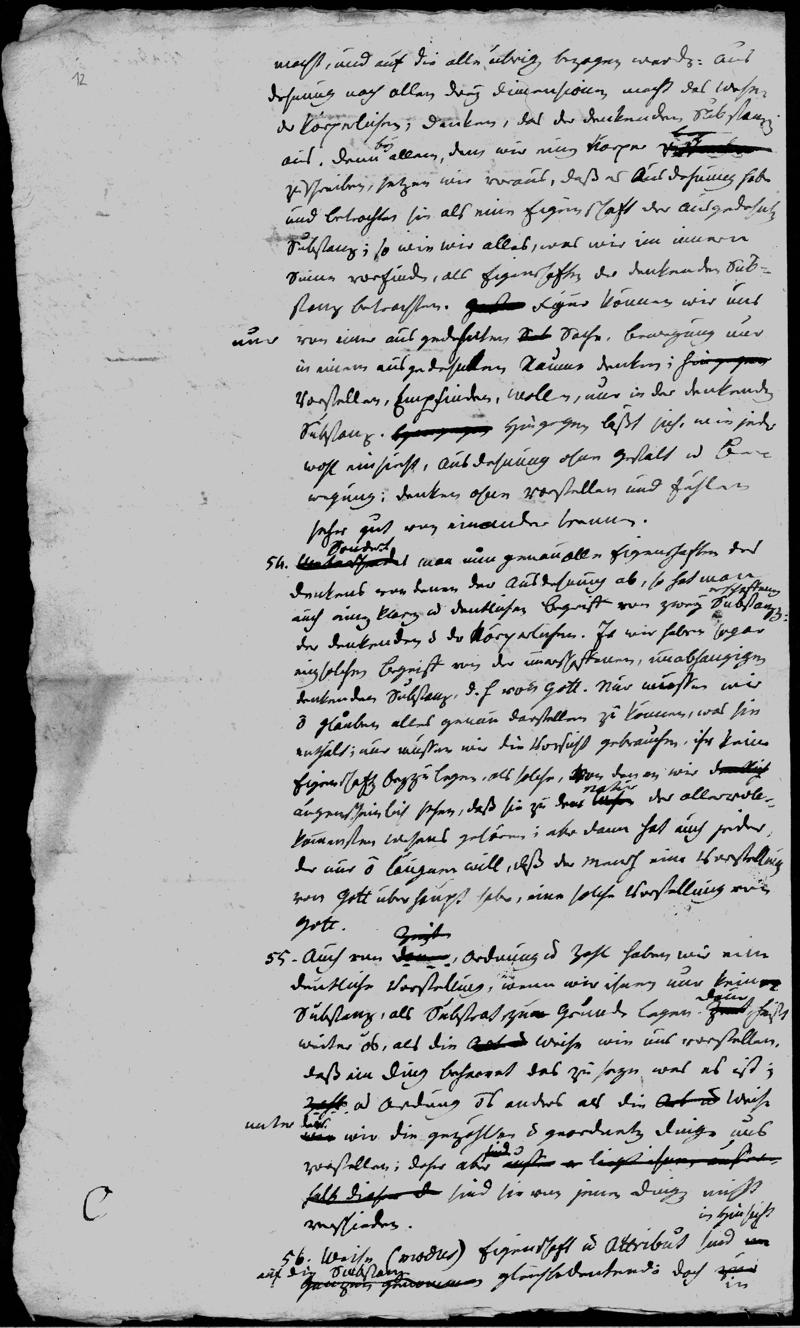 12
macht, und auf die alle übrig bezogen werdn: Aus
dehnung nach allen drey Dimensionen macht das Wesen
der körperlichen; Denken, das der denkenden Substanz
aus. Denn bey allem, dem wir einen Körper
zuschreiben, setzen wir voraus, daß es Ausdehnung habe
und betrachten sie als eine Eigenschaft der ausgedehnten
Substanz; so wie wir alles, was wir im innern
Sinne vorfinden, als Eigenschaften der denkenden Sub=
stanz betrachten. Figur können wir uns
nur von einer ausgedehnten Sache, Bewegung nur
in einem ausgedehnten Raume denken; hingegen
Vorstellen, Empfinden, wollen, nur in der denkenden
Substanz. Hingegen läßt sich, wie jeder
wohl einsieht, Ausdehnung ohne Gestalt u Be
wegung; denken ohne vorstellen und fühlen
sehr gut von einander trennen.
54. Sondert man nun genau alle Eigenschaften des
denkens von denen der Ausdehnung ab, so hat man
auch einen klaren u deutlichen Begriff von zwey erschaffenen Substanzen:
der denkenden u der körperlichen. Ja wir haben sogar
ein solchen Begriff von der unerschaffenen, unabhängigen
denkenden Substanz, d. h von Gott. Nur müssen wir
glauben alles genau darstellen zu können, was sie
enthält; nur müssen wir die Vorsicht gebrauchen, ihr keine
Eigenschaft beyzulegen, als solche, von denen wir
augenscheinlich sehen, daß sie zu der Natur des allervoll-
kommensten Wesens gehören; aber dann hat auch jeder,
der nur läugnen will, daß der Mensch eine Vorstellung
von Gott überhaupt habe, eine solche Vorstellung von
Gott.
55. Auch von Zeit, Ordnung u Zahl haben wir eine
deutliche Vorstellung, wenn wir ihnen nur keine
Substanz, als Substrat zum Grunde legen. Dauer heißt
weiter als die Weise wie uns vorstellen,
daß ein Ding beharret das zu seyn was es ist;
Zahl u Ordnung anders als die Art u Weise
unter der wir die gezählten u geordneten Dinge uns
vorstellen; daher aber
sind sie von jenen Dingen nicht
verschieden.
56. Weise (modus) Eigenschaft u Attribut sind in Hinsicht
auf die Substanz gleichbedeutend; doch
in